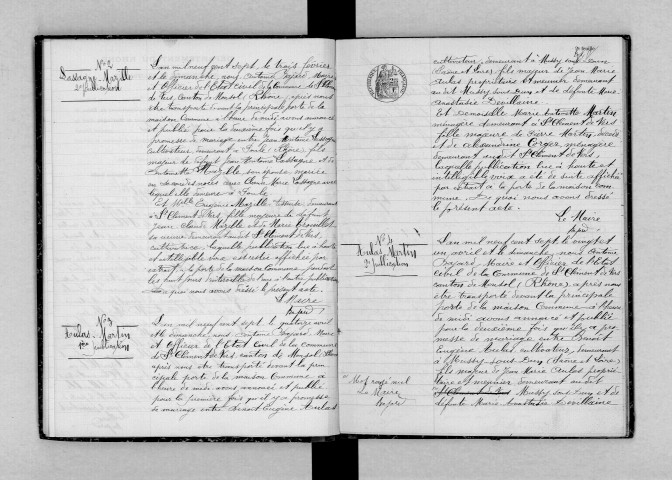 N° 2
Lassagne - Mazille
2e Publication
L'an mil neuf cent sept, le trois février
et le dimanche, nous Antoine Papard, Maire
et Officier de l'Etat Civil de la commune de St Clément
de Vers, canton de Monsol, Rhône, après nous
être transporté devant la principale porte de la
maison commune, à heure de midi avons annoncé
et publié pour la deuxième fois qu'il y a
promesse de mariage entre Jean Antoine Lassagne
cultivateur, demeurant à (Rhône) fils
majeur de Jean Antoine Lassagne et de
Antoinette
en secondes noces avec Claude Marie Lassagne avec
lequel elle demeure à
Et Melle Eugénie Mazille, demeurant
à St Clément de Vers, fille majeure de défunt
Jean Claude Mazille et de Marie
cultivatrice, laquelle publication lue à haute
et intelligible voix a été de suite affichée par
extrait à la porte de la maison commune, pendant
les huit jours d'intervalle de l'une à l'autre publication
De quoi nous avons dressé le présent acte.
Le Maire
N° 3
Aulas - Martin
1ère publication
L'an mil neuf cent sept, le quatorze avril
et le dimanche, nous Antoine Papard, Maire
et Officier de l'Etat Civil de la commune
de St Clément de Vers, canton de Monsol, Rhône
après nous être transporté devant la prin-
cipale porte de la maison Commune, à
l'heure de midi avons annoncé et publié
pour la première fois qu'il y a promesse
de mariage entre Benoit Eugène Aulas
cultivateur, demeurant à Mussy sous Dun
(Saône et Loire) fils majeur de Jean Marie
Aulas propriétaire et meunier demeurant
au dit Mussy sous Dun et de défunte Marie
Anastasie Devillaine
Et Demoiselle Marie Antoinette Martin
ménagère demeurant à St Clément de Vers
fille majeure de Pierre Martin, décédé
et de Alexandrine ménagère
demeurant au dit St Clément de Vers,
laquelle publication lue à haute et
intelligible voix a été de suite affichée
par extrait à la porte de la maison com-
mune, De quoi nous avons dressé
le présent acte.
Le Maire
N° 4
Aulas Martin
2e publication
L'an mil neuf cent sept, le vingt et
un avril et le dimanche, nous Antoine
Papard, Maire et Officier de l'Etat
Civil de la Commune de St Clément de Vers
canton de Monsol, (Rhône), après nous
être transporté devant la principale
porte de la maison Commune à l'heure
de midi avons annoncé et publié
pour la deuxième fois qu'il y a pro-
messe de mariage entre Benoit
Eugène Aulas cultivateur, demeurant
à Mussy sous Dun (Saône et Loire)
fils majeur de Jean Marie Aulas proprié-
taire et meunier demeurant au dit
Mussy sous Dun et de
défunte Marie Anastasie Devillaine
Mot rayé nul
Le Maire